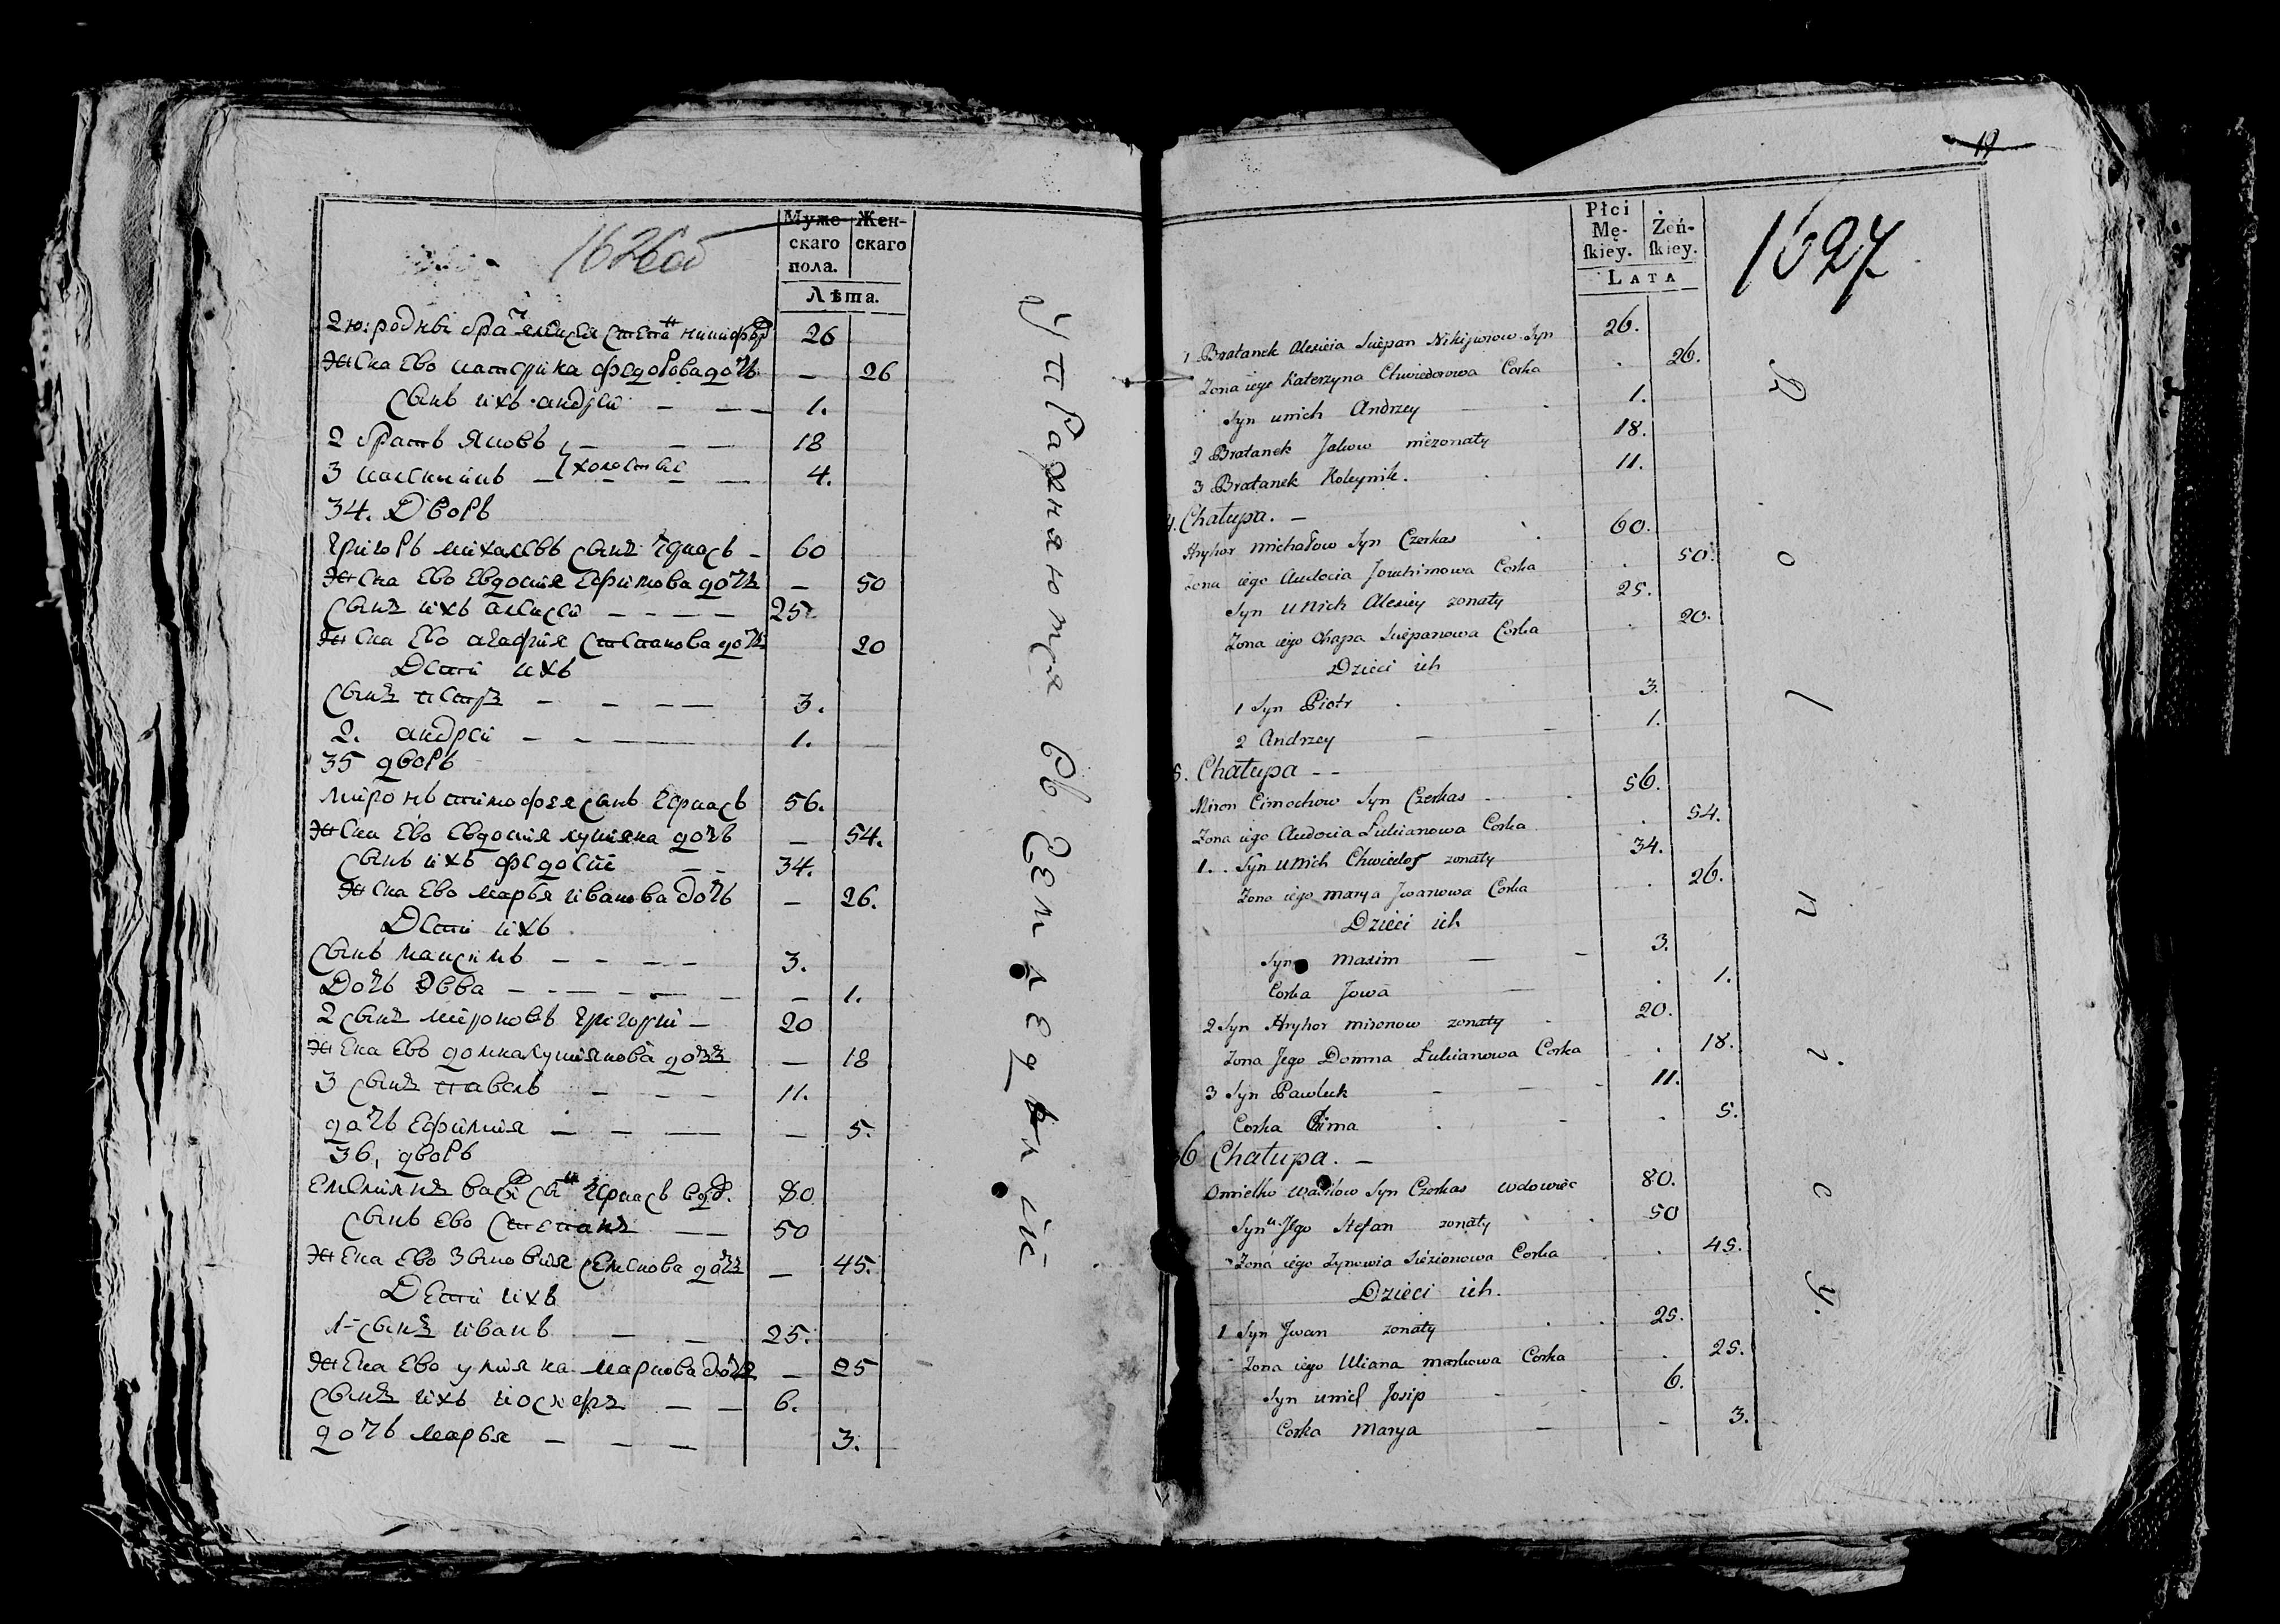 1626об
Муже-
скаго
пола.
Жен-
скаго
Лѣта.
2ю: родны бра ч алексея степа н никифор 26
жена ево катерина федорова дочь — 26
сынъ ихъ андрей — — — 1.
2 братъ яковъ — — — 18
холостые
3 калсникъ — — — 4.
34. Дворъ
григоръ михалевъ сынъ чэркасъ — 60
жена ево евдокия ефимова дочъ — 50
сынъ ихъ алексей — — — — 25.
жена ево агафия степанова дочъ 20
Дети ихъ
сынъ петръ — — — — 3.
2. андрей — — — 1.
35 дворъ
миронъ тимофея сынъ черкасъ 56.
жена ево евдокия лукияна дочъ — 54.
сынъ ихъ федосей — — 34.
жена ево марья иванова дочь — 26.
Дети ихъ
сынъ максимъ — — — — 3.
Дочь Эвва — — — — — — 1.
2 сынъ мироновъ григорий — 20
жена ево домна лукиянова дочъ — 18
3 сынъ павелъ — — — 11.
дочъ ефимия — — — — 5.
36, дворъ
емелиянъ васи сы н черкасъ вдв. 80
сынъ ево степанъ — — 50
жена ево зыновия семенова дочъ — 45.
Дети ихъ
1- сынъ иванъ — — 25.
жена ево улияна маркова дочъ — 25
сынъ ихъ иосифъ — — 6.
дочъ марья — — — 3.
Упражняются въ земледелии
19
1627
Płci
Mę-
ſkiey.
Żeń-
ſkiey.
LATA
1 Bratanek Alexieia Sciepan Nikiforow Syn 26.
Zona iego Katerzyna Chwiedorowa Corka . 26.
Syn u nich Andrzey 1.
2 Bratanek Jakow niezonaty 18.
3 Bratanek Koleynik. 11.
4. Chałupa. —
Hryhor Michałow Syn Czerkas 60.
Zona iego Audocia Jouchimowa Corka . 50.
Syn u Nich Alexiey zonaty 25.
Zona iego Ohapa Sciepanowa Corka . 20.
Dzieci ich
1 Syn Piotr 3.
2 Andrzey 1.
5. Chałupa - -
Miron Cimochow Syn Czerkas 56.
Zona iego Audocia Łukianowa Corka . 54.
1. Syn u nich Chwiedor zonaty 34.
Zona iego Marya Jwanowa Corka . 26.
Dzieci ich
Syn Maxim 3.
Corka Jowa . 1.
2 Syn Hryhor Mironow zonaty 20.
Zona Jego Domna Łukianowa Corka . 18.
3 Syn Pawluk 11.
Corka Chima . 5.
36 Chałupa. —
Omielko Wasilow Syn Czerkas wdowiec 80.
Syn Jego Stefan zonaty 50
Zona iego Zynowia Siemionowa Corka . 45.
Dzieci ich.
1 Syn Jwan zonaty 25.
Zona iego Uliana Markowa Corka . 25.
Syn u nich Josip 6.
Corka Marya 3.
Rolnicy.